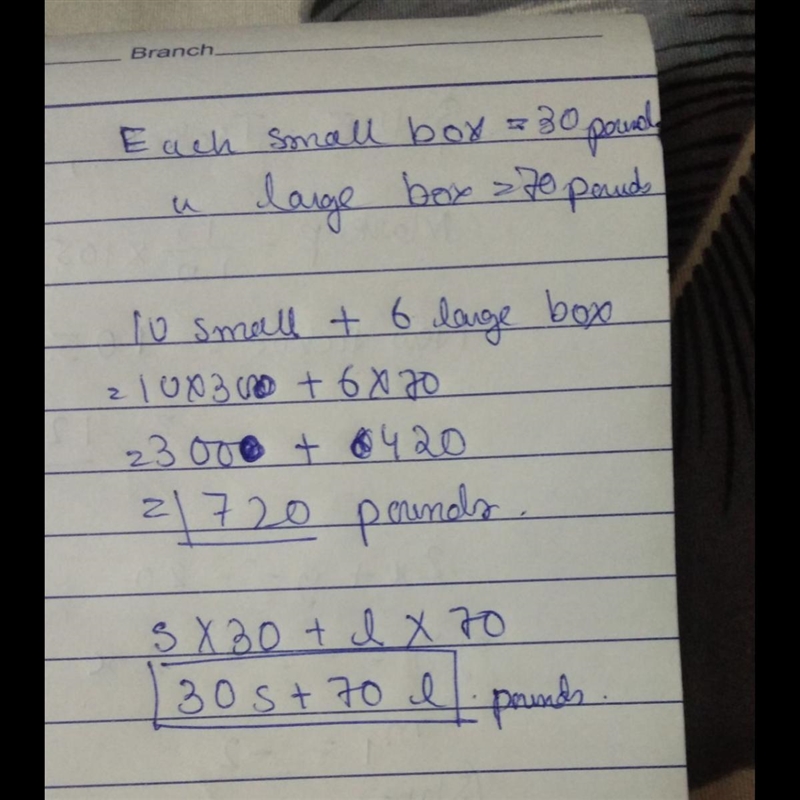 Branch
Each small box = 30 pounds
u large box = 70 pounds
10 small + 6 large box
= 10 x 30 + 6 x 70
= 300 + 420
= 720 pounds.
s x 30 + l x 70
30 s + 70 l . pounds.